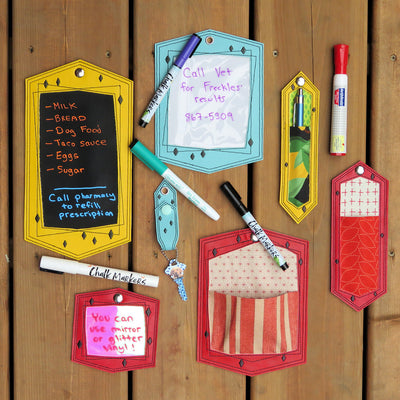 - MILK
- BREAD
- Dog Food
- Taco sauce
- Eggs
- Sugar
Call pharmacy
to refill
prescription
Call Vet
for Freckles'
results
867-5909
CHALK MARKERS
You can
use mirror
or glitter
vinyl!